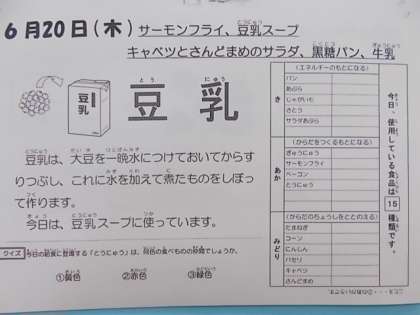 6月20日(木) サーモンフライ、豆乳スープ
キャベツとさんどまめのサラダ、黒糖パン、牛乳
豆乳
豆乳
豆乳は、大豆を一晩水につけておいてからす
りつぶし、これに水を加えて煮たものをしぼっ
て作ります。
今日は、豆乳スープに使っています。
クイズ 今日の給食に登場する「とうにゅう」は、何色の食べものの仲間でしょうか。
①黄色 ②赤色 ③緑色
今日、使用している食品は15種類です。
き
(エネルギーのもとになる)
パン
あぶら
じゃがいも
さとう
サラダあぶら
あか
(からだをつくるもとになる)
ぎゅうにゅう
サーモンフライ
ベーコン
とうにゅう
みどり
(からだのちょうしをととのえる)
たまねぎ
コーン
にんじん
パセリ
キャベツ
さんどまめ